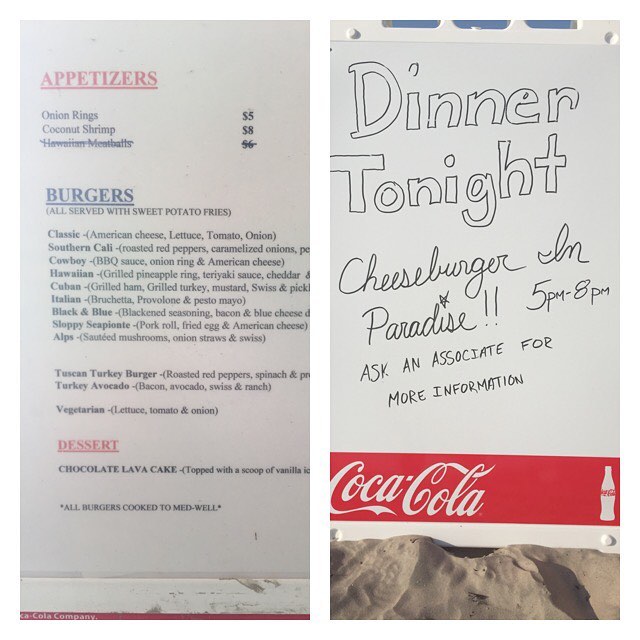 APPETIZERS
Onion Rings $5
Coconut Shrimp $8
Hawaiian Meatballs $6
BURGERS
(ALL SERVED WITH SWEET POTATO FRIES)
Classic -(American cheese, Lettuce, Tomato, Onion)
Southern Cali -(roasted red peppers, caramelized onions, pe
Cowboy -(BBQ sauce, onion ring & American cheese)
Hawaiian -(Grilled pineapple ring, teriyaki sauce, cheddar &
Cuban -(Grilled ham, Grilled turkey, mustard, Swiss & pickl
Italian -(Bruchetta, Provolone & pesto mayo)
Black & Blue -(Blackened seasoning, bacon & blue cheese d
Sloppy Seapionte -(Pork roll, fried egg & American cheese)
Alps -(Sautéed mushrooms, onion straws & swiss)
Tuscan Turkey Burger -(Roasted red peppers, spinach & pr
Turkey Avocado -(Bacon, avocado, swiss & ranch)
Vegetarian -(Lettuce, tomato & onion)
DESSERT
CHOCOLATE LAVA CAKE -(Topped with a scoop of vanilla ic
*ALL BURGERS COOKED TO MED-WELL*
ca-Cola Company.
Dinner
Tonight
Cheeseburger In
Paradise!! 5pm-8pm
ASK AN ASSOCIATE FOR
MORE INFORMATION
Coca-Cola